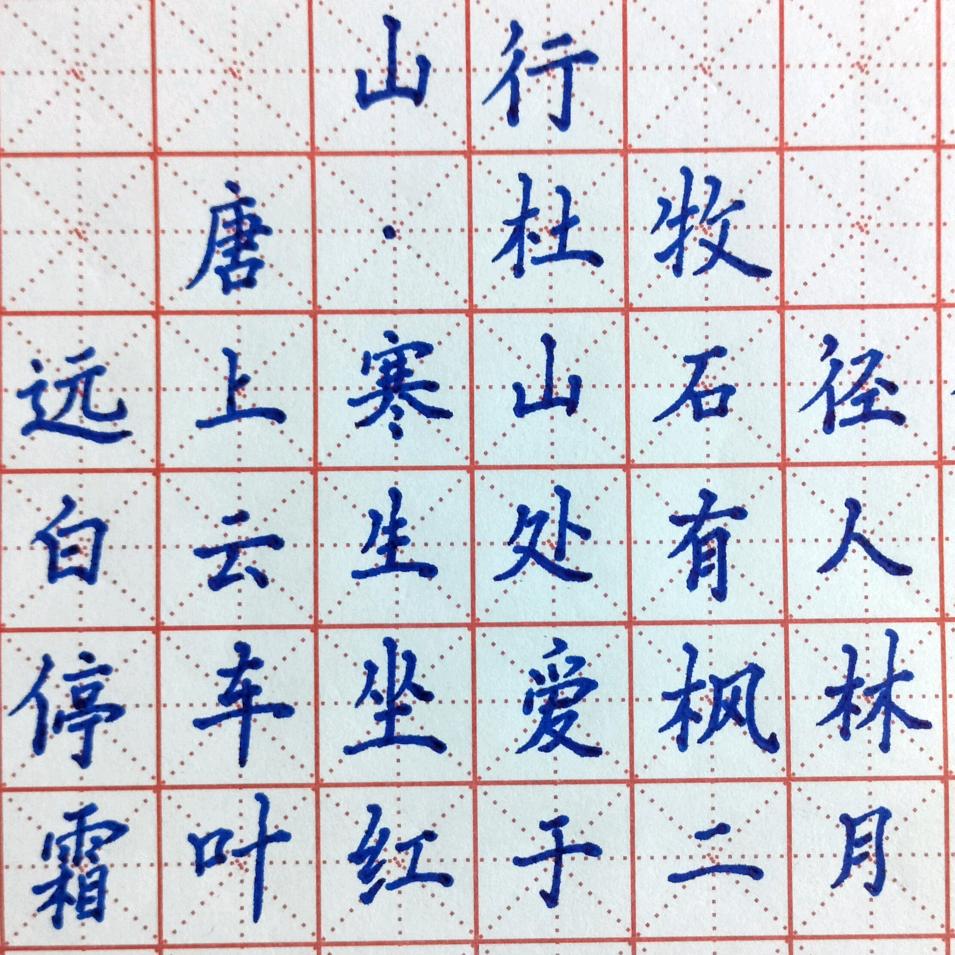 山行
唐·杜牧
远上寒山石径
白云生处有人
停车坐爱枫林
霜叶红于二月